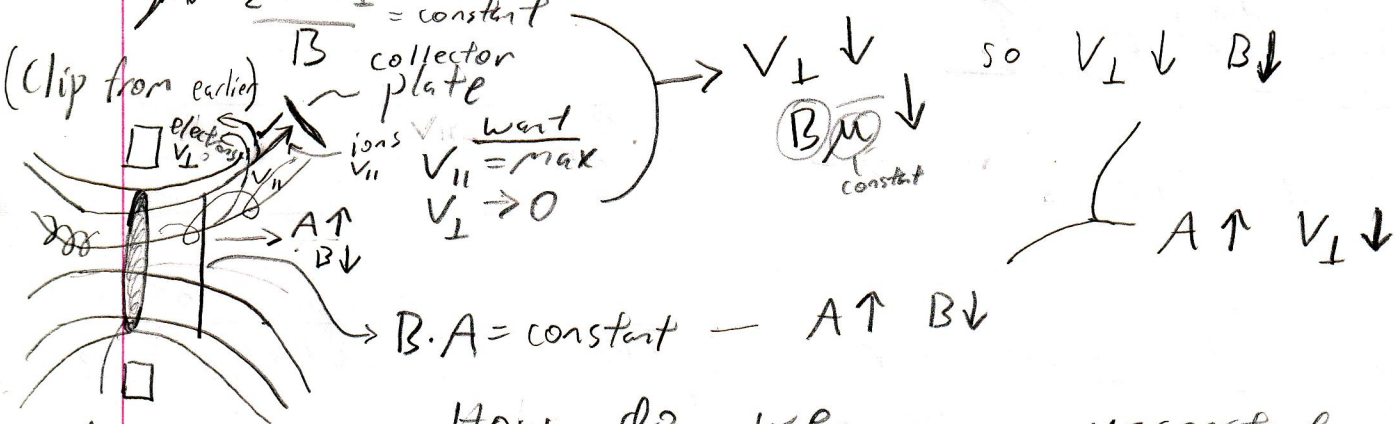 B = constant
(Clip from earlier)
collector
plate
electrons
V⊥
ions
V∥
V∥
want
V∥ = max
V⊥ → 0
→ V⊥ ↓ so V⊥ ↓ B↓
Bμ ↓
constant
A↑
B↓
A↑ V⊥ ↓
B·A = constant — A↑ B↓
How do we